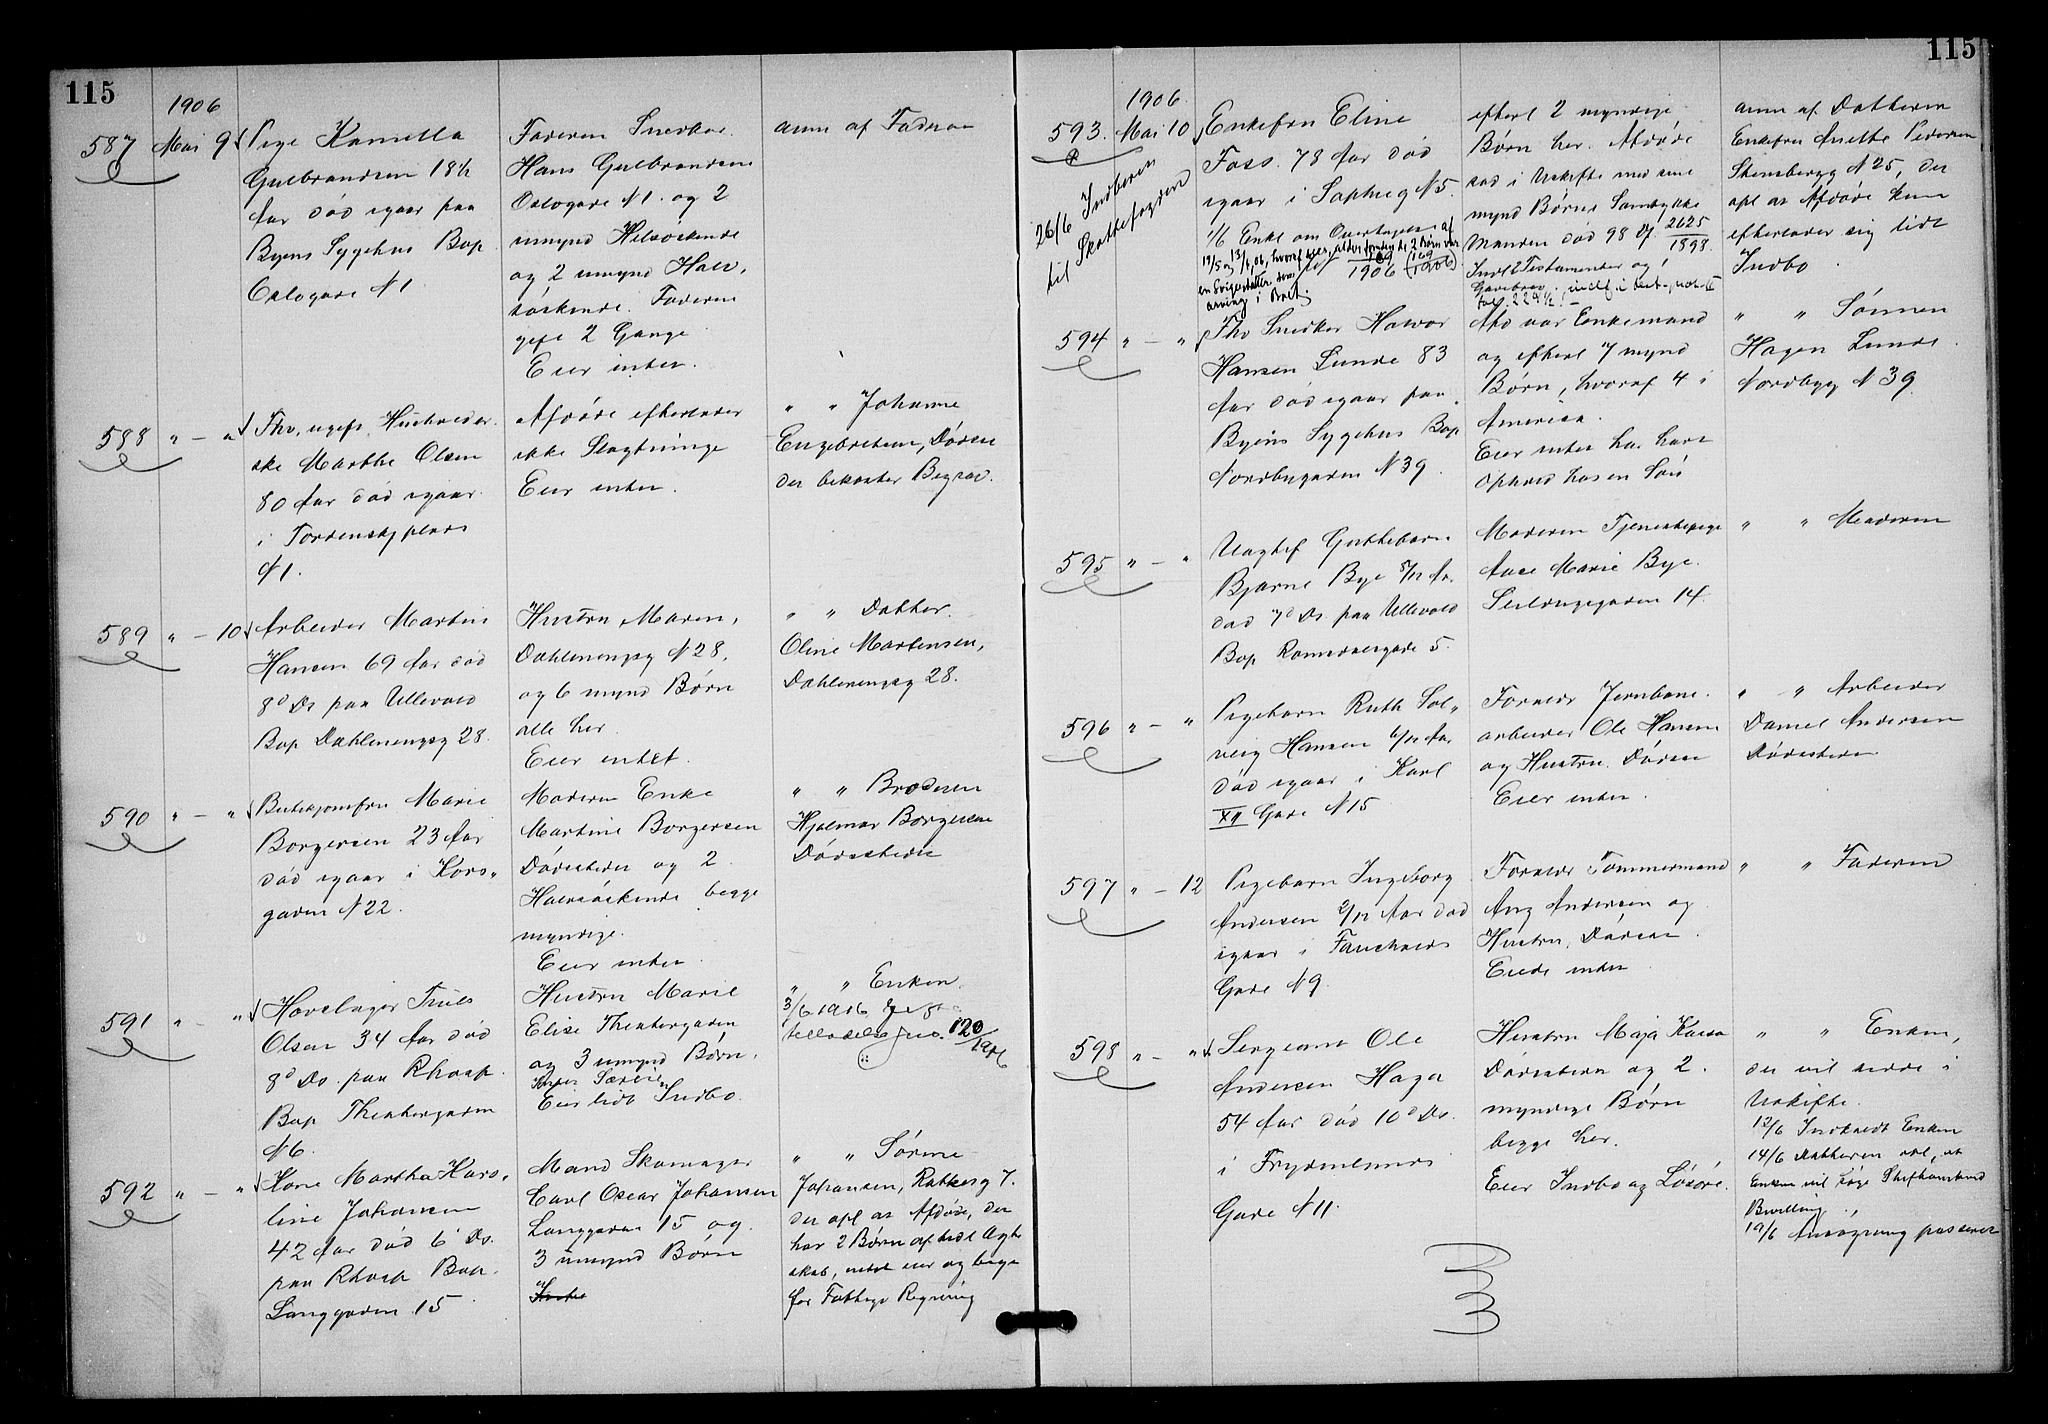 115
1906
587 Mai 9 Pige Kamilla
Gulbrandsen 18½
Aar død igaar paa
Byens Sygehus Bop
Oslogade N 1
Faderen Snedker
Hans Gulbrandsen
Oslogade N 1. og 2
umynd Helsøskende
og 2 umynd Halv-
søskende. Faderen
gift 2 Gange
Eier intet.
anm af Faderen
588 " — " Fhv. ugift Husholder-
ske Marthe Olsen
80 Aar død igaar
i Tordenskj plads
N 1.
Afdøde efterlader
ikke Slægtninge
Eier intet.
" " Johanne
Engebretsen, Dødsst
der bekoster Begrav.
589 " — 10 Arbeider Martin
Hansen 69 Aar død
8d Ds paa Ullevold
Bop Dahlenengsg 28.
Hustru Maren,
Dahlenengsg N 28,
og 6 mynd Børn
alle her.
Eier intet.
" " Datter
Oline Martensen,
Dahlenengsg 28.
590 " — " Butikjomfru Marie
Borgersen 23 Aar
død igaar i Kors-
gaden N 22.
Moderen Enke
Martine Borgersen
Dødsstedet og 2
Halvsøskende begge
myndige.
Eier intet.
" " Broderen
Hjalmar Borgersen
Dødsstedet
591 " — " Hovslager Truls
Olsen 34 Aar død
8d Ds. paa Rhosp.
Bop Theatergaden
N 6.
Hustru Marie
Elise Theatergaden
og 3 umynd Børn.
Eier lidt Indbo.
" " Enken.
3/6 1916
120
1916
592 " — " Kone Martha Karo-
line Johansen
42 Aar død 6' Ds.
paa Rhosp Bop.
Langgaden 15
Mand Skomager
Carl Oscar Johansen
Langgaden 15 og
3 umynd Børn
" " Sørine
Johansen, Rakkesg 7.
der opl at Afdøde, der
har 2 Børn af sidst Ægte-
skab, intet eier og begr
for Fattigv Regning
115
1906
593. Mai 10 Enkefru Eline
Foss. 78 Aar død
igaar i Sophieg N 5.
26/6 Indberen
til Skattefogden
1906
efterl 2 myndige
Børn her. Afdøde
sad i Uskifte med sine
mynd Børns Samtykke
Manden død 98 Df. 2625
1898.
Indl 2 Testamenter og 1
Gavebrev
anm af Datteren
Enkefru Anette Pedersen
Stensbergg N 25, der
opl at Afdøde kun
efterlader sig lidt
Indbo.
594 " — " Fhv Snedker Hawor
Hansen Lunde 83
Aar død igaar paa
Byens Sygehus Bop
Nordbygaden N 39.
Afd var Enkemand
og efterl 7 mynd
Børn, hvoraf 4 i
America.
Eier intet har havt
Ophold hos en Søn
" " Sønnen
Hagen Lunde.
Nordbyg N 39.
595 " — " Uægtef Guttebarn
Bjarne Bye 5/12 Ar.
død 7d Ds. paa Ullevold
Bop Romsdalsgade 5.
Moderen Tjenestepige
Aase Marie Bye.
Seildugsgaden 14.
" " Moderen
596 " — " Pigebarn Ruth Sol-
veig Hansen 6/12 Aar
død igaar i Karl
XII Gade N 15
Forældr Jernbane-
arbeider Ole Hansen
og Hustru. Dødsst
Eier intet.
" " Arbeider
Daniel Andersen
Dødsstedet
597 " — 12 Pigebarn Ingeborg
Andersen 2/12 Aar død
igaar i Fauchalds
Gade N 9.
Forældr Tømmermand
Aug Andersen og
Hustru, Dødsst.
Eiede intet
" " Faderen
598 " — " Sergeant Ole
Andersen Haga
54 Aar død 10d Ds.
i Frydenlunds
Gade N 11.
Hustru Maja Kaisa
Dødsstedet og 2
myndige Børn
begge her.
Eier Indbo og Løsøre.
" " Enken,
der vil sidde i
Uskifte.
12/6 Indkaldt Enken
14/6 Datteren opl, at
Enken vil søge Skifteunderd
Bevilling.
19/6 Ansøgning passeret